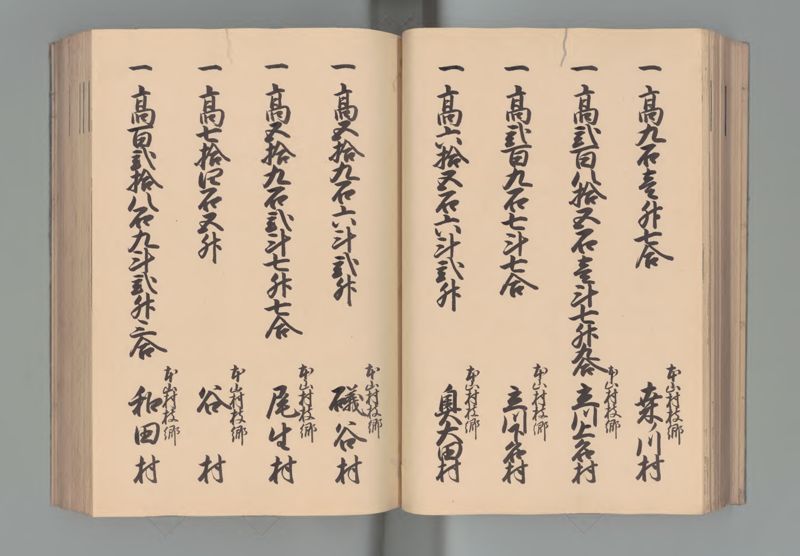 一高九石壱升七合
本山村枝郷
桑ノ川村
一高弐百八拾五石壱斗七升九合
本山村枝郷
立川上名村
一高弐百九石七斗七合
本山村枝郷
立川下名村
一高六拾五石六斗弐升
本山村枝郷
奥大田村
一高五拾九石六斗弐升
本山村枝郷
磯谷村
一高五拾九石弐斗七升七合
本山村枝郷
尾生村
一高七拾四石五升
本山村枝郷
谷村
一高百弐拾八石九斗弐升二合
本山村枝郷
和田村